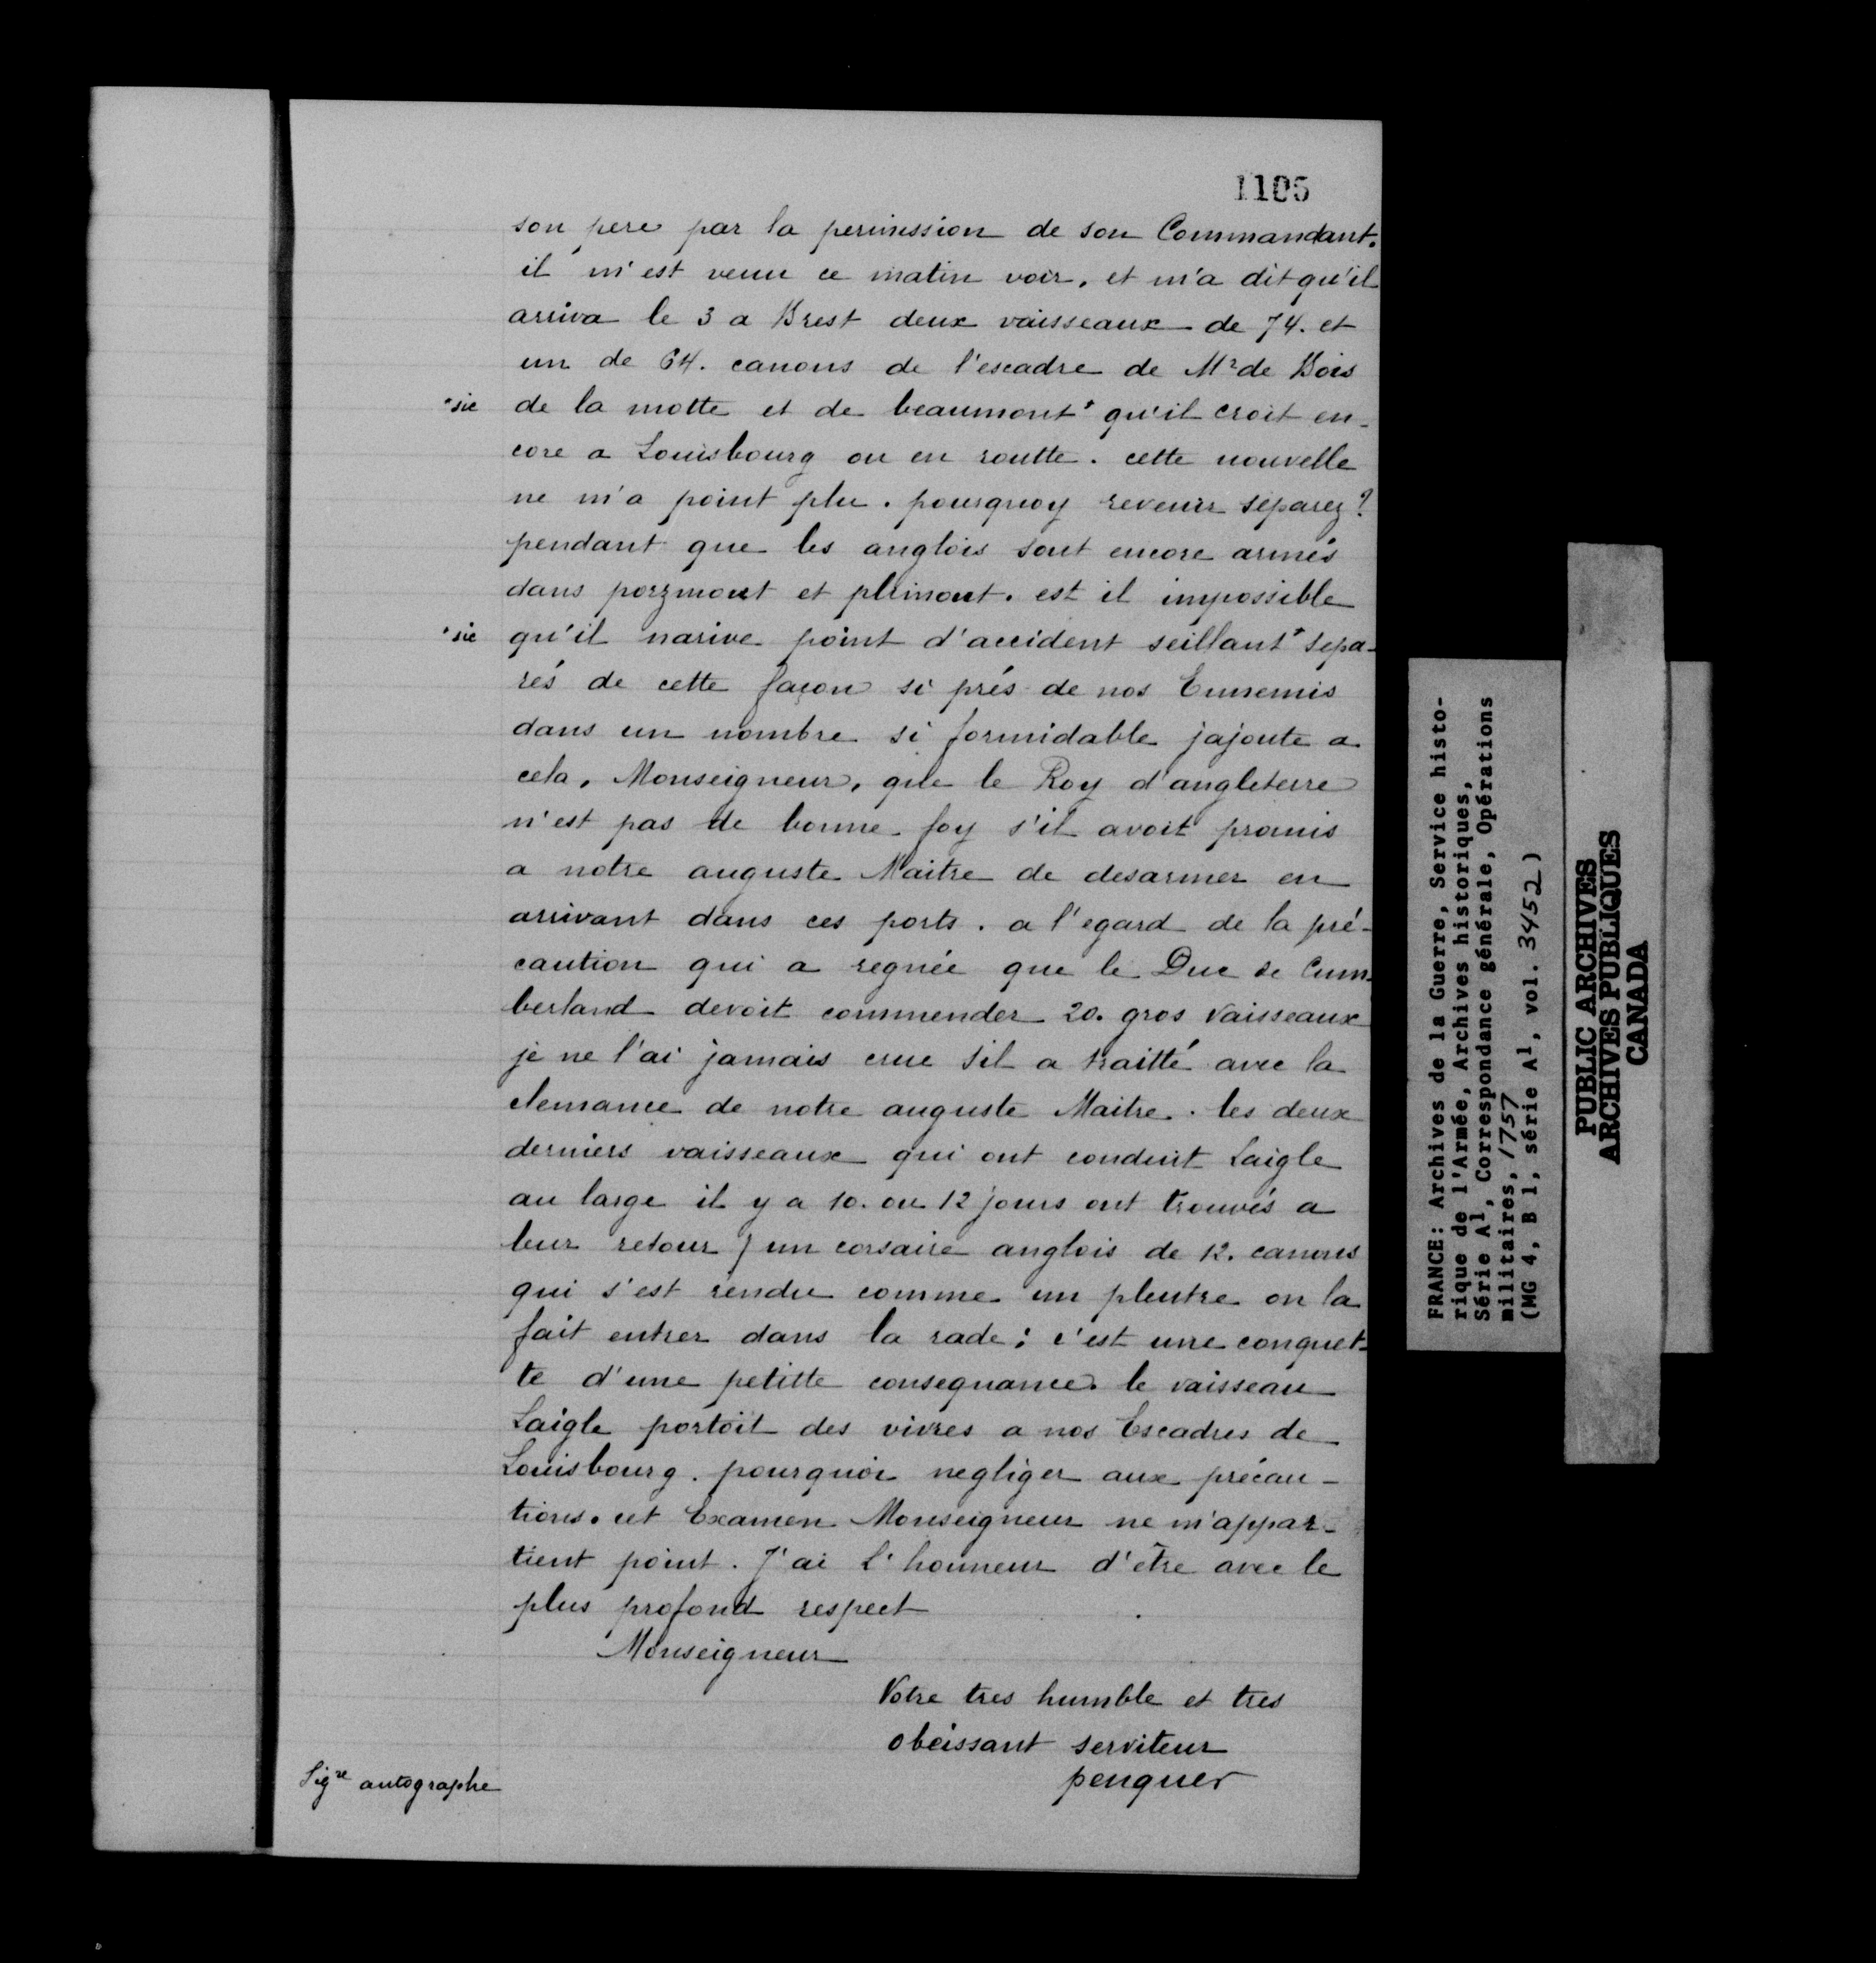 1105
son pere par la permission de son Commandant.
il m'est venu ce matin voir. et m'a dit qu'il
arriva le 3 a Brest deux vaisseaux de 74. et
un de 64. canons de l'escadre de Mr de Bois
*sic de la motte et de beaumont* qu'il croit en-
core a Louisbourg ou en routte. cette nouvelle
ne m'a point plu. pourquoy revenir separez?
pendant que les anglois sont encore armés
dans porzmout et plimout. est il impossible
*sic qu'il narive point d'accident seillant* sepa-
rés de cette façon si prés de nos Ennemis
dans un nombre si formidable jajoute a
cela, Monseigneur, que le Roy d'angleterre
n'est pas de bonne foy s'il avoit promis
a notre auguste Maitre de desarmer en
arrivant dans ces ports. a l'egard de la pré-
caution qui a regnée que le Duc de Cum-
berland devoit commender 20. gros vaisseaux
je ne l'ai jamais crue s'il a traitté avec la
clemance de notre auguste Maitre. les deux
derniers vaisseaux qui ont conduit Laigle
au large il y a 10. ou 12 jours ont trouvés a
leur retour un corsaire anglois de 12. canons
qui s'est rendu comme un pleutre on la
fait entrer dans la rade; c'est une conquet-
te d'une petitte consequance. le vaisseau
Laigle portoit des vivres a nos Escadres de
Louisbourg. pourquoi negliger aux précau-
tions. cet Examen Monseigneur ne m'appar-
tient point. J'ai l'honneur d'être avec le
plus profond respect
Monseigneur
Votre tres humble et tres
obéissant serviteur
penquer
Sigre autographe
FRANCE: Archives de la Guerre, Service histo-
rique de l'Armée, Archives historiques,
Série A1, Correspondance générale, Opérations
militaires, 1757
(MG 4, B 1, série A1, vol. 3452)
PUBLIC ARCHIVES
ARCHIVES PUBLIQUES
CANADA